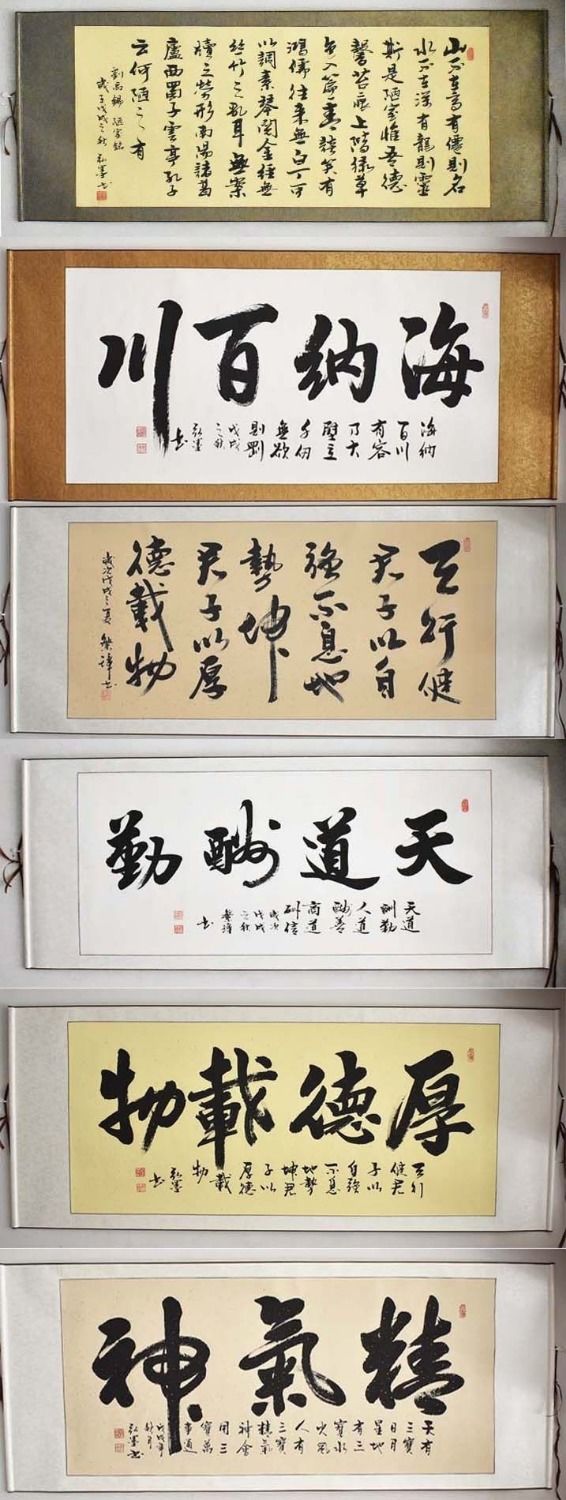 山不在高有僊則名
水不在深有龍則靈
斯是陋室惟吾德
馨苔痕上階綠草
色入簾青談笑有
鴻儒往來無白丁可
以調素琴閱金經無
絲竹之亂耳無案
牘之勞形南陽諸葛
廬西蜀子雲亭孔子
云何陋之有
劉禹錫 陋室銘
歲在戊戌之秋 弘墨書
海納百川
海納
百川
有容
乃大
壁立
千仞
無欲
則剛
戊戌
之秋
弘墨
書
天行健
君子以自
強不息地
勢坤
君子以厚
德載物
歲次戊戌之夏 書
天道酬勤
天道
酬勤
人道
酬善
商道
酬信
歲次
戊戌
之秋
書
厚德載物
天行
健君
子以
自強
不息
地勢
坤君
子以
厚德
載
物
弘墨
書
精氣神
天有
三寶
日月
星地
有三
寶水
火風
人有
三寶
精氣
神會
用三
寶萬
事通
戊戌年
秋月
弘墨書